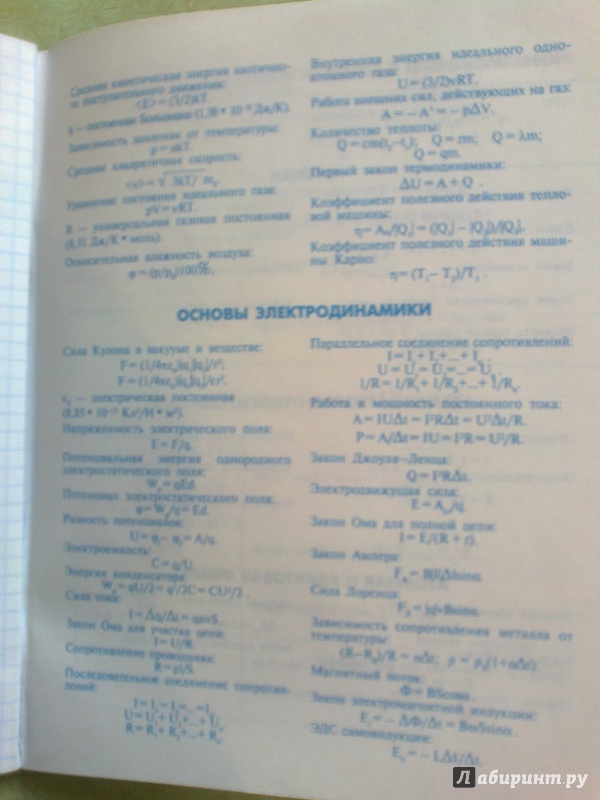 Средняя кинетическая энергия хаотично-
го поступательного движения:
<E> = (3/2)kT.
k – постоянная Больцмана (1,38 * 10⁻²³ Дж/К).
Зависимость давления от температуры:
p = nkT.
Средняя квадратичная скорость:
Уравнение состояния идеального газа:
pV = νRT.
R – универсальная газовая постоянная
(8,31 Дж/К * моль).
Относительная влажность воздуха:
φ = (p/p₀)100%.
Внутренняя энергия идеального одно-
атомного газа:
U = (3/2)νRT.
Работа внешних сил, действующих на газ:
A = – A' = – pΔV.
Количество теплоты:
Q = cm(t₂–t₁); Q = rm; Q = λm;
Q = qm.
Первый закон термодинамики:
ΔU = A + Q .
Коэффициент полезного действия тепло-
вой машины:
Коэффициент полезного действия маши-
ны Карно:
η = (T₁ – T₂)/T₁ .
ОСНОВЫ ЭЛЕКТРОДИНАМИКИ
Сила Кулона в вакууме и веществе:
F = (1/4πε₀)|q₁||q₂|/r²;
F = (1/4πε₀)|q₁||q₂|/εr².
ε₀ – электрическая постоянная
(8,85 * 10⁻¹² Кл²/Н * м²).
Напряженность электрического поля:
E = F/q.
Потенциальная энергия однородного
электростатического поля:
Wₚ = qEd.
Потенциал электростатического поля:
φ = Wₚ/q = Ed.
Разность потенциалов:
U = φ₁ – φ₂ = A/q.
Электроемкость:
C = q/U.
Энергия конденсатора:
Wₚ = qU/2 = q²/2C = CU²/2 .
Сила тока:
I = Δq/Δt = qnvS.
Закон Ома для участка цепи:
I = U/R.
Сопротивление проводника:
R = ρl/S.
Последовательное соединение сопротив-
лений:
I = I₁ = I₂=...=Iₙ
U = U₁ + U₂+...+ Uₙ
R = R₁ + R₂+...+ Rₙ
Параллельное соединение сопротивлений:
I = I₁+ I₂+...+ Iₙ .
U = U₁= U₂=...=Uₙ
1/R = 1/R₁+ 1/R₂+...+ 1/Rₙ.
Работа и мощность постоянного тока:
A = IUΔt = I²RΔt = U²Δt/R.
P = A/Δt = IU = I²R = U²/R.
Закон Джоуля–Ленца:
Q = I²RΔt.
Электродвижущая сила:
Закон Ома для полной цепи:
I = E/(R + r).
Закон Ампера:
Сила Лоренца:
Зависимость сопротивления металла от
температуры:
(R–R₀)/R = αΔt; ρ = ρ₀(1+αΔt).
Магнитный поток:
Φ = BScosα
Закон электромагнитной индукции:
Eᵢ = – ΔΦ/Δt = BωSsinα.
ЭДС самоиндукции:
= – LΔI/Δt.
Лабиринт.ру